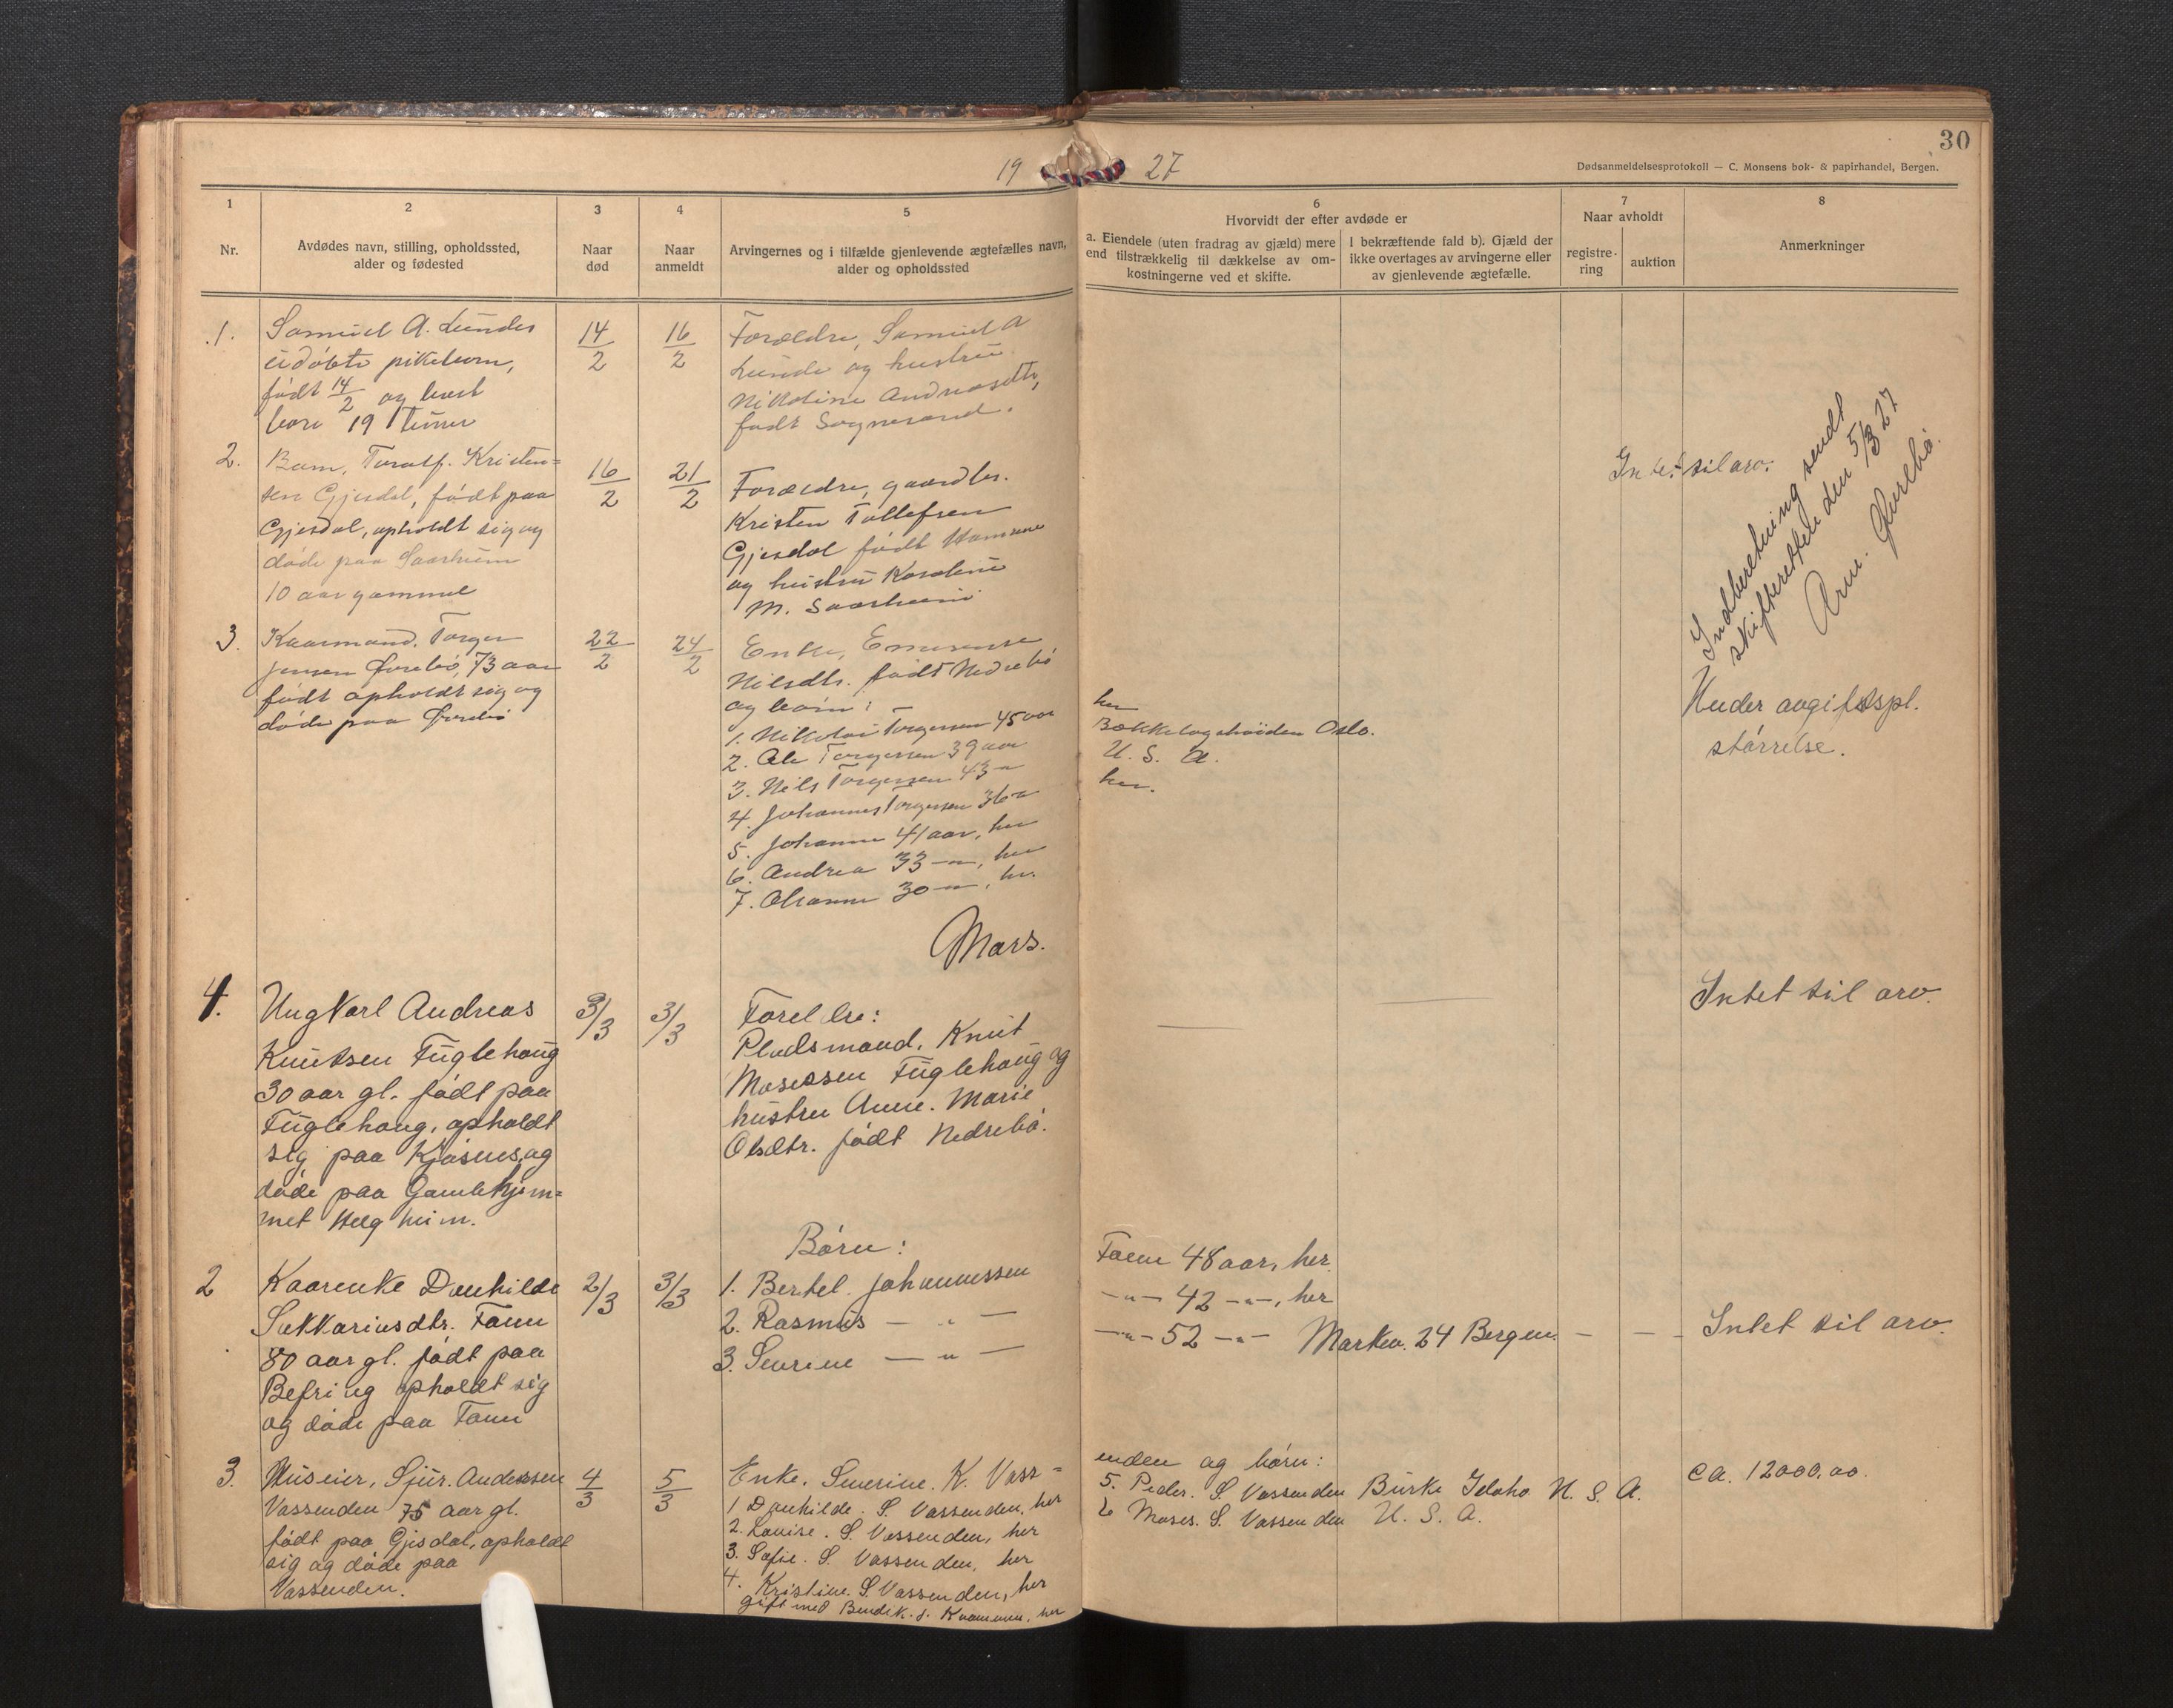 30
19 27
Dødsanmeldelsesprotokoll — C. Monsens bok- & papirhandel, Bergen.
1
Nr.
2
Avdødes navn, stilling, opholdssted,
alder og fødested
3
Naar
død
4
Naar
anmeldt
5
Arvingernes og i tilfælde gjenlevende ægtefælles navn,
alder og opholdssted
6
Hvorvidt der efter avdøde er
a. Eiendele (uten fradrag av gjæld) mere
end tilstrækkelig til dækkelse av om-
kostningerne ved et skifte.
I bekræftende fald b). Gjæld der
ikke overtages av arvingerne eller
av gjenlevende ægtefælle.
7
Naar avholdt
registre-
ring
auktion
8
Anmerkninger
1.
Samuel A. Lundes
udöbte pikebarn,
födt 14/2 og levet
bare 19 Timer
14/2
16/2
Forældre, Samuel A
Lunde og hustru
Nikoline Andreasdtr,
født Sognesand.
2.
Barn, Toralf. Kristen=
sen Gjesdal, födt paa
Gjesdal, opholdt sig og
döde paa Saarheim
10 aar gammel
16/2
21/2
Forældre, gaardbr.
Kristen Tollefsen
Gjesdal födt
og hustru
M. Saarheim
Intet til arv.
3.
Kaarmand. Torger
Jensen 73 aar
født opholdt sig og
döde paa
22/2
24/2
Enke,
Nilsdtr. født Nedrebö
og børn:
1. Nikolai Torgersen 45 aar
2. Ole Torgersen 39 aar
3. Nils Torgersen 43 —
4. Johannes Torgersen 36 —
5. Johanne 41 aar, her
6. Andrea 33 —"—, her
7. 30 —"—, her.
her
Bækkelagshöiden Oslo.
U. S. A.
her.
Indberetning sendt
skifteretten den 5/3 27
Arne.
Under avgiftspl.
størrelse.
Mars.
4.
Ungkarl Andreas
Knutsen Fuglehaug
30 aar gl. födt paa
Fuglehaug, opholdt
sig paa Kjøsnes, og
döde paa Gamlehjem=
met Helgheim.
3/3
3/3
Foreldre:
Pladsmand. Knut
Mosessen Fuglehaug og
hustru Anne. Marie
Olsdtr. födt Nedrebö.
Intet til arv.
2
Kaarenke Danhilde
Sakkariasdtr. Fonn
80 aar gl. födt paa
Befring opholdt sig
og döde paa Fonn
2/3
3/3
Børn:
1. Bertel. Johannessen
2. Rasmus — " —
3. Severine — " —
Fonn 48 aar, her.
—"— 42 —"—, her
—"— 52 —"— Marken. 24 Bergen. — — —
Intet til arv.
3.
Huseier, Sjur. Andersen
Vassenden 75 aar gl.
födt paa Gjesdal, opholdt
sig og döde paa
Vassenden.
4/3
5/3
Enke. Severine. K. Vass=
1 Danhilde. S. Vassenden, her
2. Lovise. S. Vassenden, her
3. Sofie. S. Vassenden, her
4. Kristine. S. Vassenden, her
gift med Bendik. J. her
enden og börn:
5. Peder. S. Vassenden Burke Idaho U. S. A.
6 Moses. S. Vassenden U. S. A.
ca. 12000.00.